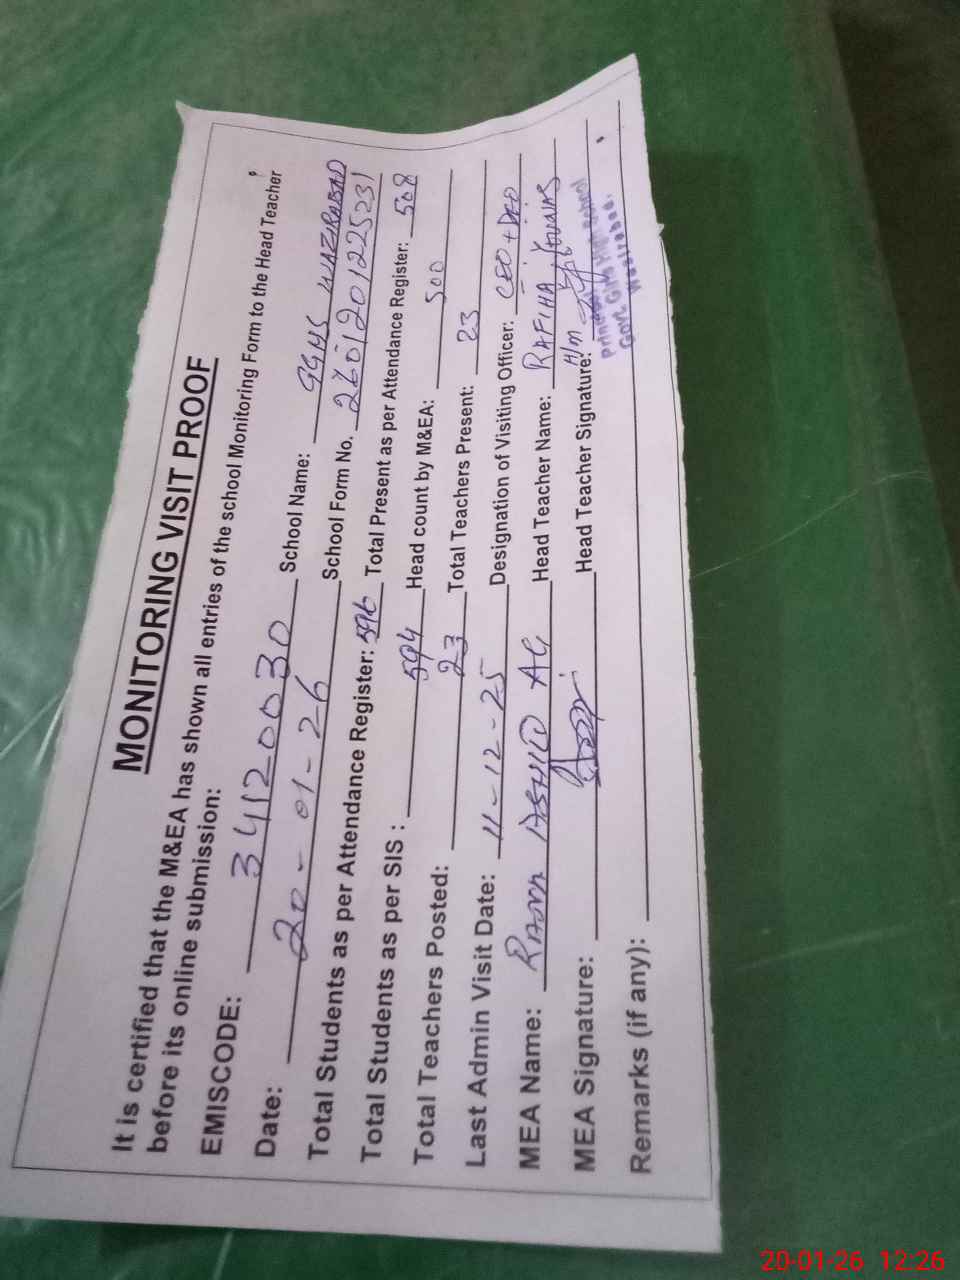 MONITORING VISIT PROOF
It is certified that the M&EA has shown all entries of the school Monitoring Form to the Head Teacher
before its online submission:
EMISCODE: 34120030 School Name: GGHS WAZIRABAD
Date: 20-01-26 School Form No. 2601201225231
Total Students as per Attendance Register: 596 Total Present as per Attendance Register: 508
Total Students as per SIS : 594 Head count by M&EA: 500
Total Teachers Posted: 23 Total Teachers Present: 23
Last Admin Visit Date: 11-12-25 Designation of Visiting Officer: CEO + DEO
MEA Name: RANA ASHIQ Head Teacher Name: RAFIHA YOUNAS
MEA Signature: Head Teacher Signature: H/m
Govt. Girls High School
Wazirabad.
Remarks (if any):
20-01-26 12:26